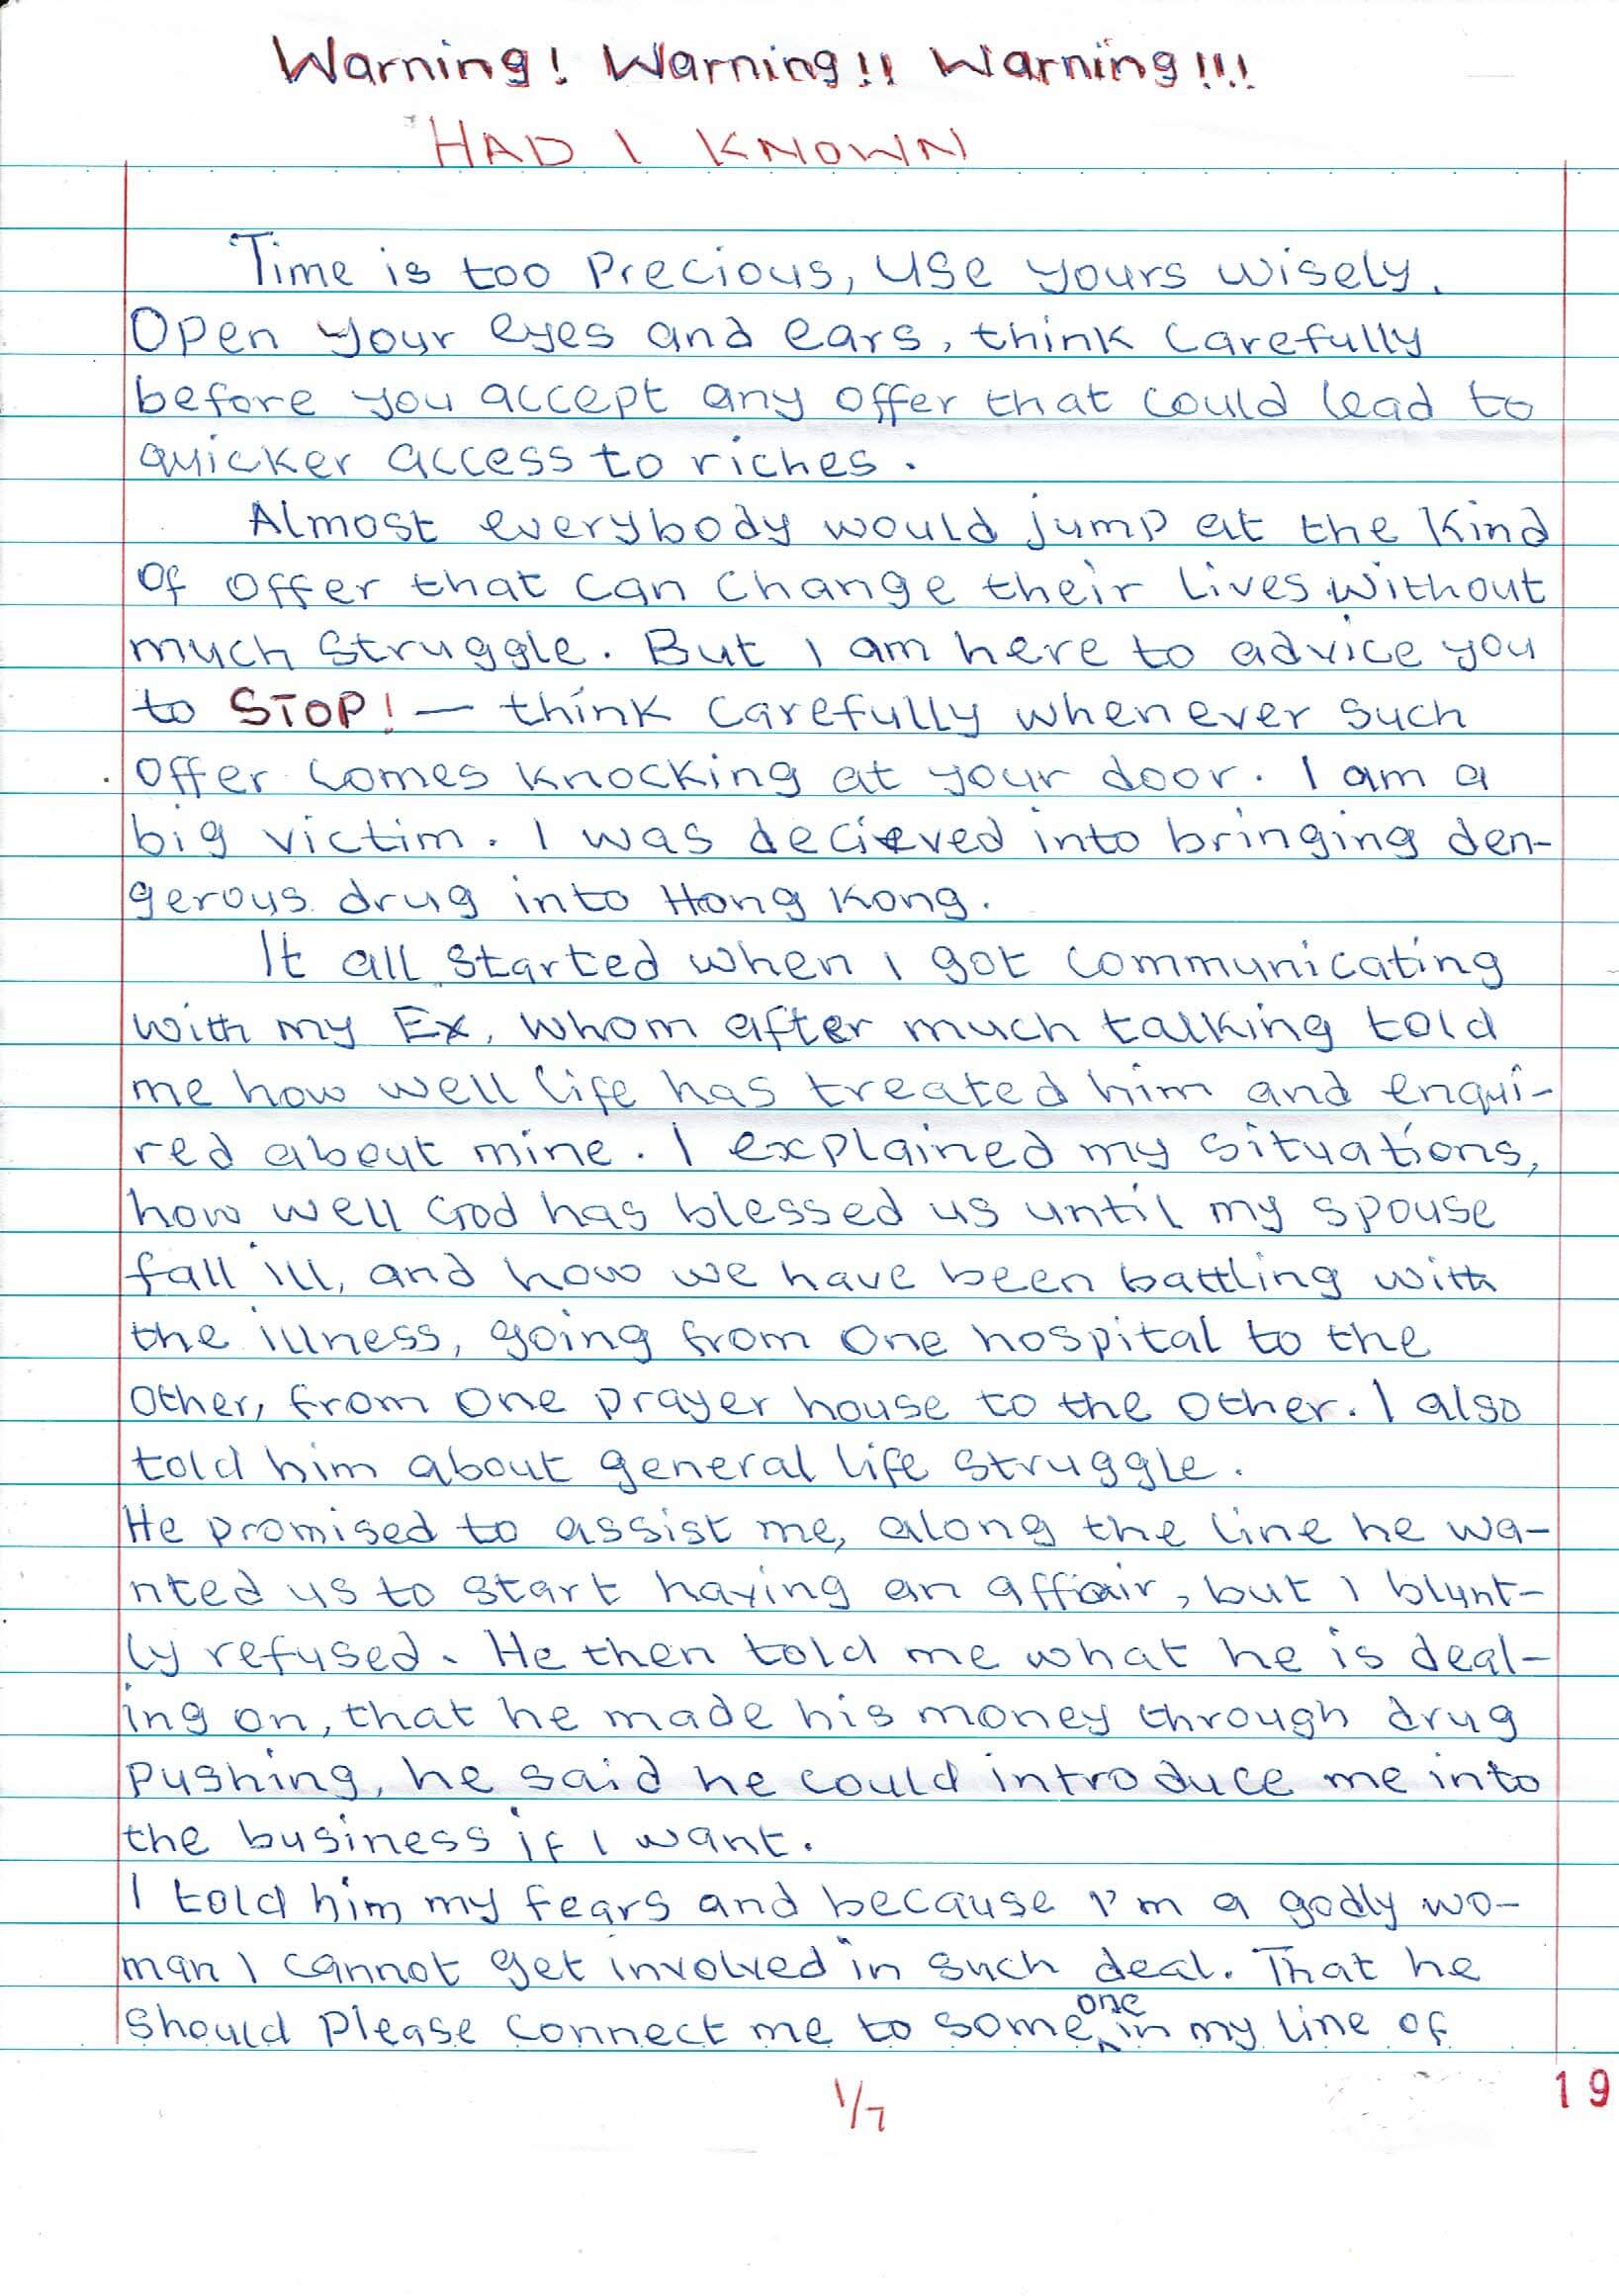 Warning! Warning!! Warning!!!
HAD I KNOWN
Time is too Precious, use yours wisely.
Open your eyes and ears, think carefully
before you accept any offer that could lead to
quicker access to riches.
Almost everybody would jump at the kind
of offer that can change their lives without
much struggle. But I am here to advice you
to STOP! — think carefully whenever such
offer comes knocking at your door. I am a
big victim. I was decieved into bringing den-
gerous drug into Hong Kong.
It all started when I got communicating
with my Ex, whom after much talking told
me how well life has treated him and enqui-
red about mine. I explained my situations,
how well God has blessed us until my spouse
fall ill, and how we have been battling with
the illness, going from one hospital to the
other, from one prayer house to the other. I also
told him about general life struggle.
He promised to assist me, along the line he wa-
nted us to start having an affair, but I blunt-
ly refused. He then told me what he is deal-
ing on, that he made his money through drug
pushing, he said he could introduce me into
the business if I want.
I told him my fears and because I'm a godly wo-
man I cannot get involved in such deal. That he
should please connect me to someone in my line of
1/7
19